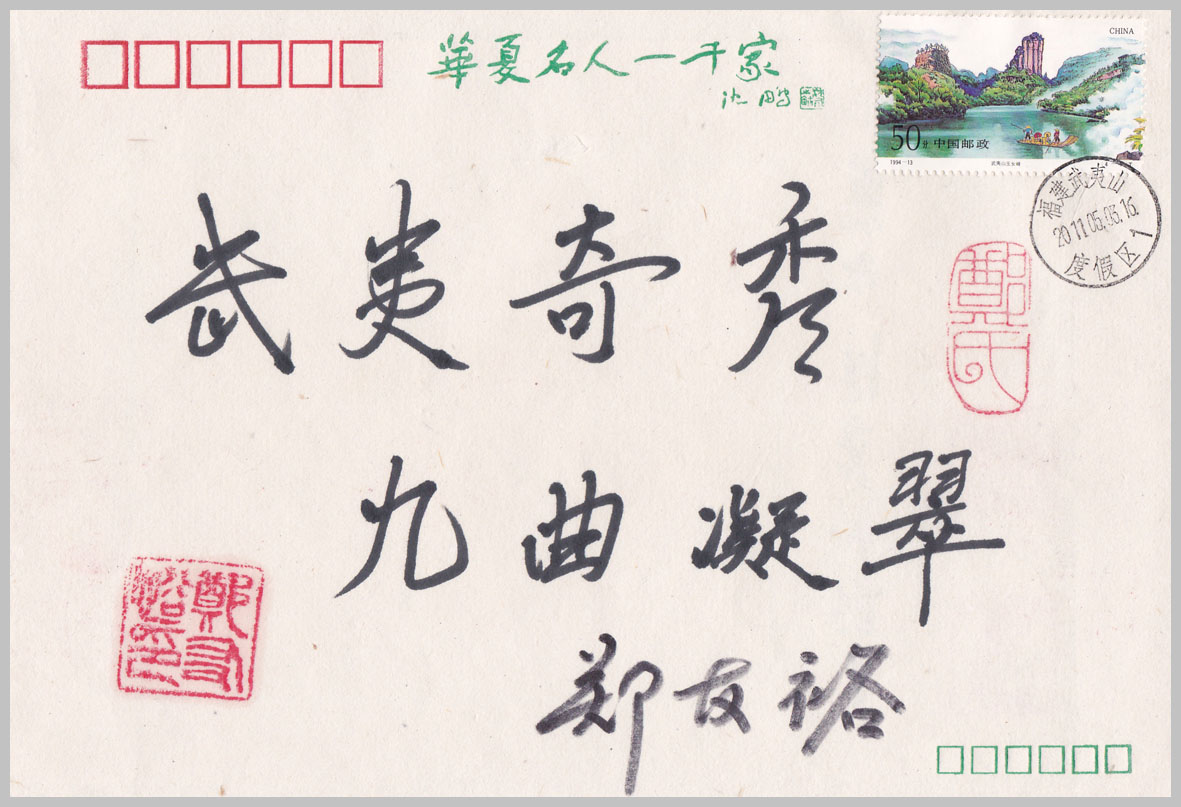 華夏名人一千家
沈鹏
CHINA
50分 中国邮政
1994-13
武夷山玉女峰
福建武夷山
2011.05.03.16
度假区1
武夷奇秀
鄭氏
九曲凝翠
鄭友裕印
郑友裕